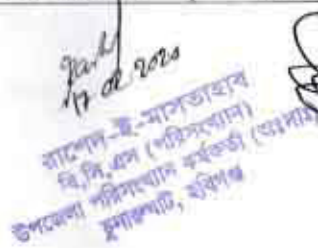 17 02 2020
রাশেদ-ই-মাসতাহাব
বি,সি,এস (পরিসংখ্যান)
উপজেলা পরিসংখ্যান কর্মকর্তা (অঃদাঃ)
চুনারুঘাট, হবিগঞ্জ